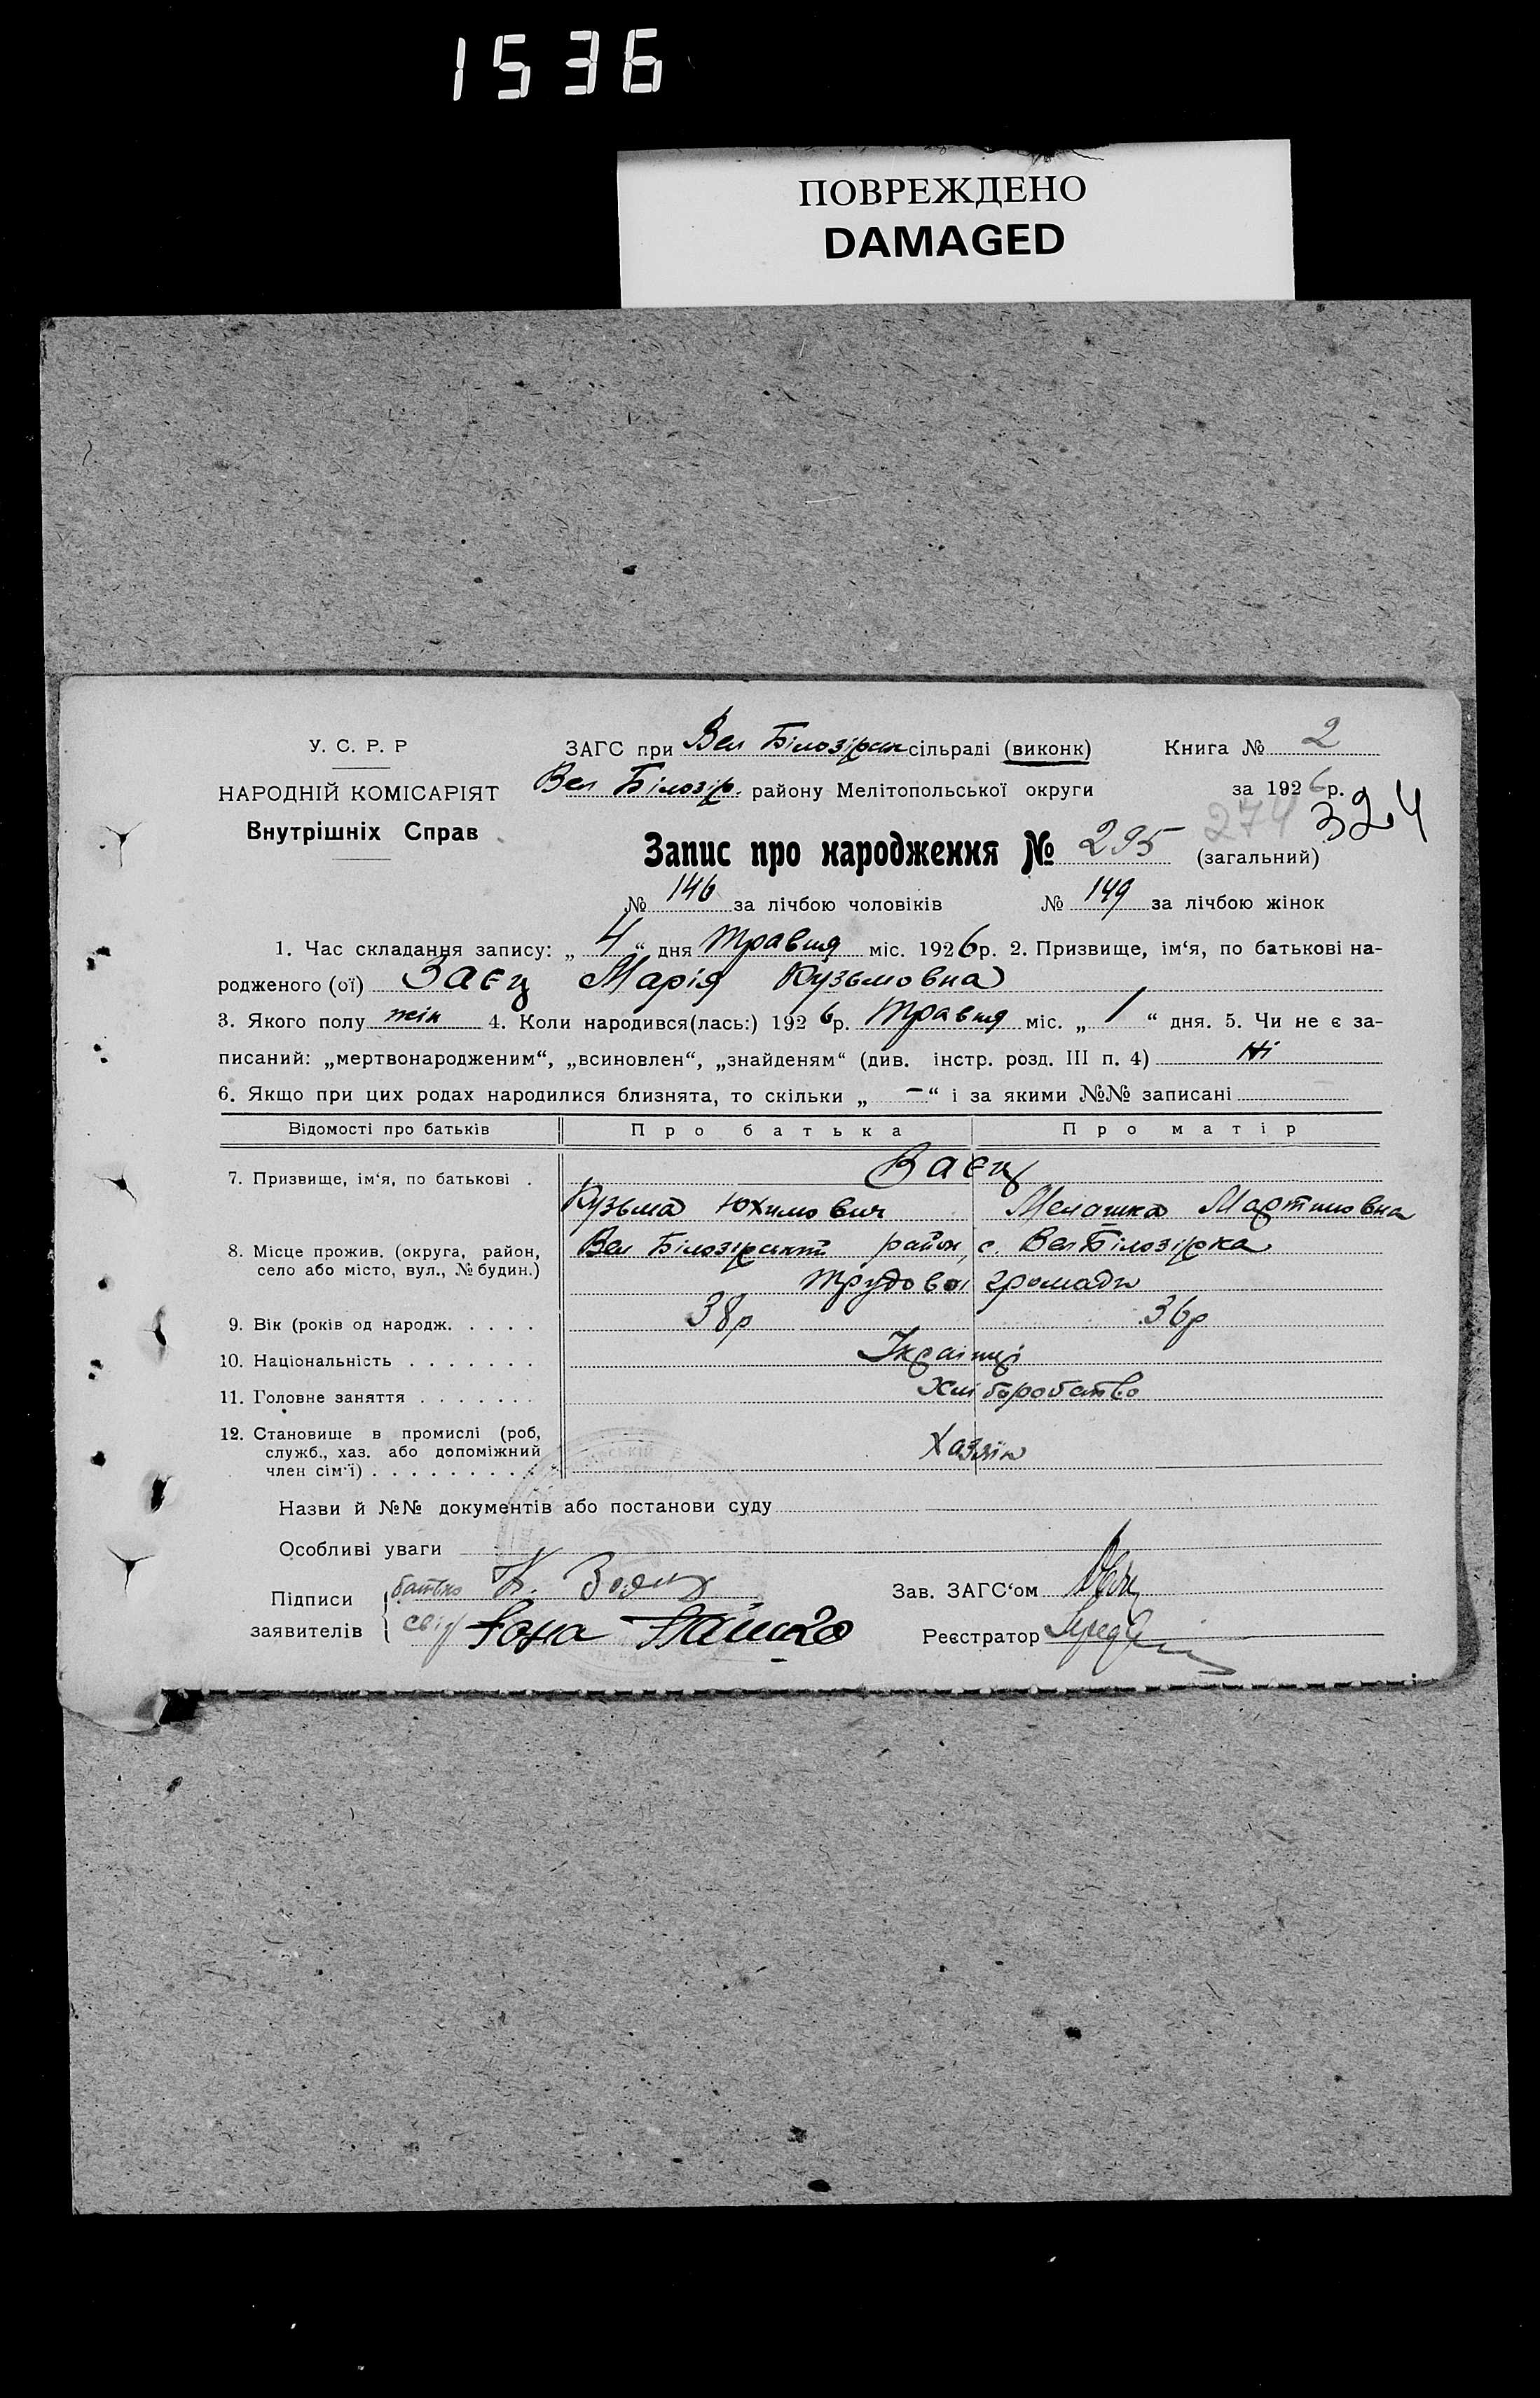 1536
ПОВРЕЖДЕНО
DAMAGED
У. С. Р. Р
ЗАГС при Вел Білозірск сільраді (виконк) Книга № 2
НАРОДНІЙ КОМІСАРІЯТ
Вел Білозір. району Мелітопольської округи за 1926р.
Внутрішніх Справ
274 324
Запис про народження № 295 (загальний)
№ 146 за лічбою чоловіків № 149 за лічбою жінок
1. Час складання запису: „4“ дня травня міс. 1926р. 2. Призвище, ім‘я, по батькові на-
родженого (ої) Заєц Марія Кузьмовна
3. Якого полу жін 4. Коли народився(лась:) 1926р. Травня міс. „1“ дня. 5. Чи не є за-
писаний: „мертвонародженим“, „всиновлен“, „знайденям“ (див. інстр. розд. III п. 4) Ні
6. Якщо при цих родах народилися близнята, то скільки „ – “ і за якими №№ записані
Відомості про батьків Про батька Про матір
7. Призвище, ім‘я, по батькові . Заєц
Кузьма Юхимович Мелашка Мартиновна
8. Місце прожив. (округа, район, село або місто, вул., № будин.) Вел Білозірський район, с. Вел Білозірка
Трудовоі громади
9. Вік (років од народж. . . . . 38р 36р
10. Національність . . . . . . . Українці
11. Головне заняття . . . . . . . Хліборобство
12. Становище в промислі (роб, служб., хаз. або допоміжний член сім‘ї) . . . . . . . . . Хазяїн
Назви й №№ документів або постанови суду
Особливі уваги
Підписи заявителів
батько К. Заяц
свід
Зав. ЗАГС‘ом
Реєстратор